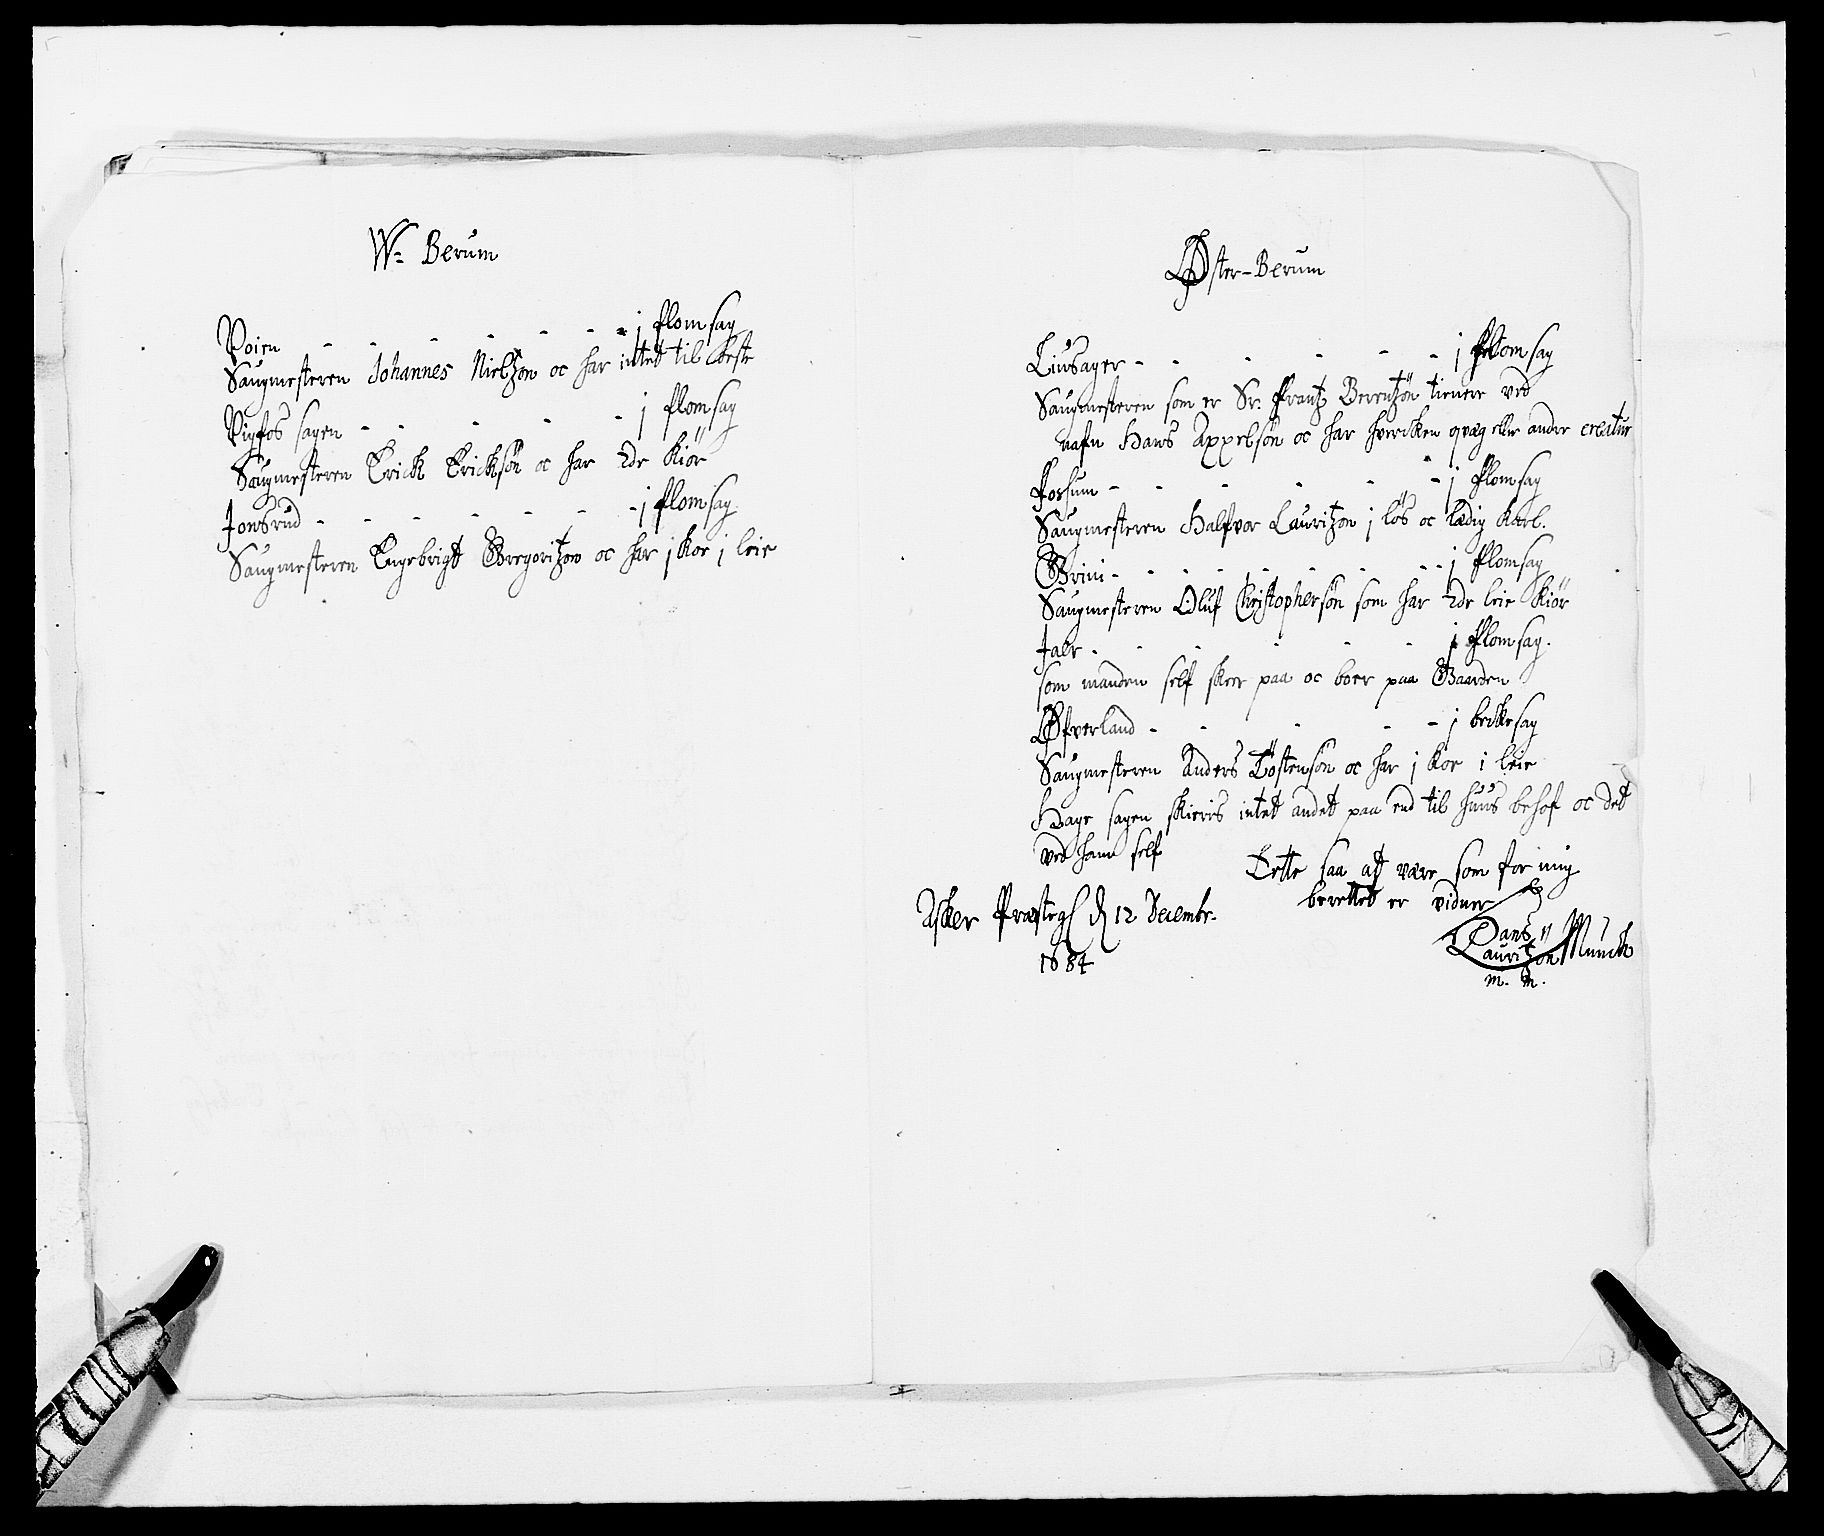 W: Berum
Voien - - - - - - - 1 flomsag
Saugmesteren Johannes Nielszon oc har intet til beste
Vigfos sagen - - - - - 1 flomsag
Saugmesteren Erick Ericksön oc har 2de Kiör
Jonsrud - - - - - - - 1 flomsag
Saugmesteren Engebrigt Gregoritzon oc har j Koe j leie
Øster-Berum
Liusager - - - - - - 1 flomsag
Saugmesteren som er Sr: Frantz Berentzön tienere ved
nafn Hans Axxelsön oc har hvercken qvæg eller andre creatur
Fossum - - - - - - 1 flomsag
Saugmesteren Halfvor Lauritzon j lös oc lædig Karl.
Grini - - - - - - - - 1 flomsag
Saugmesteren Oluf Christophersön som har 2de leie Kiör
Jaer - - - - - - 1 flomsag.
som manden self sker paa oc boer paa Gaarden
Øfverland - - - - - 1 beckesag
Saugmesteren Anders Töstensön oc har j Koe i leie
Hage sagen skieris intet andet paa end til huus behof oc det
ved ham self
Dette saa at være som for mig
berettet er vidner
Asker Præsteg d 12 Decembr.
1684
Hans
Lauritzön Munch
m. m.